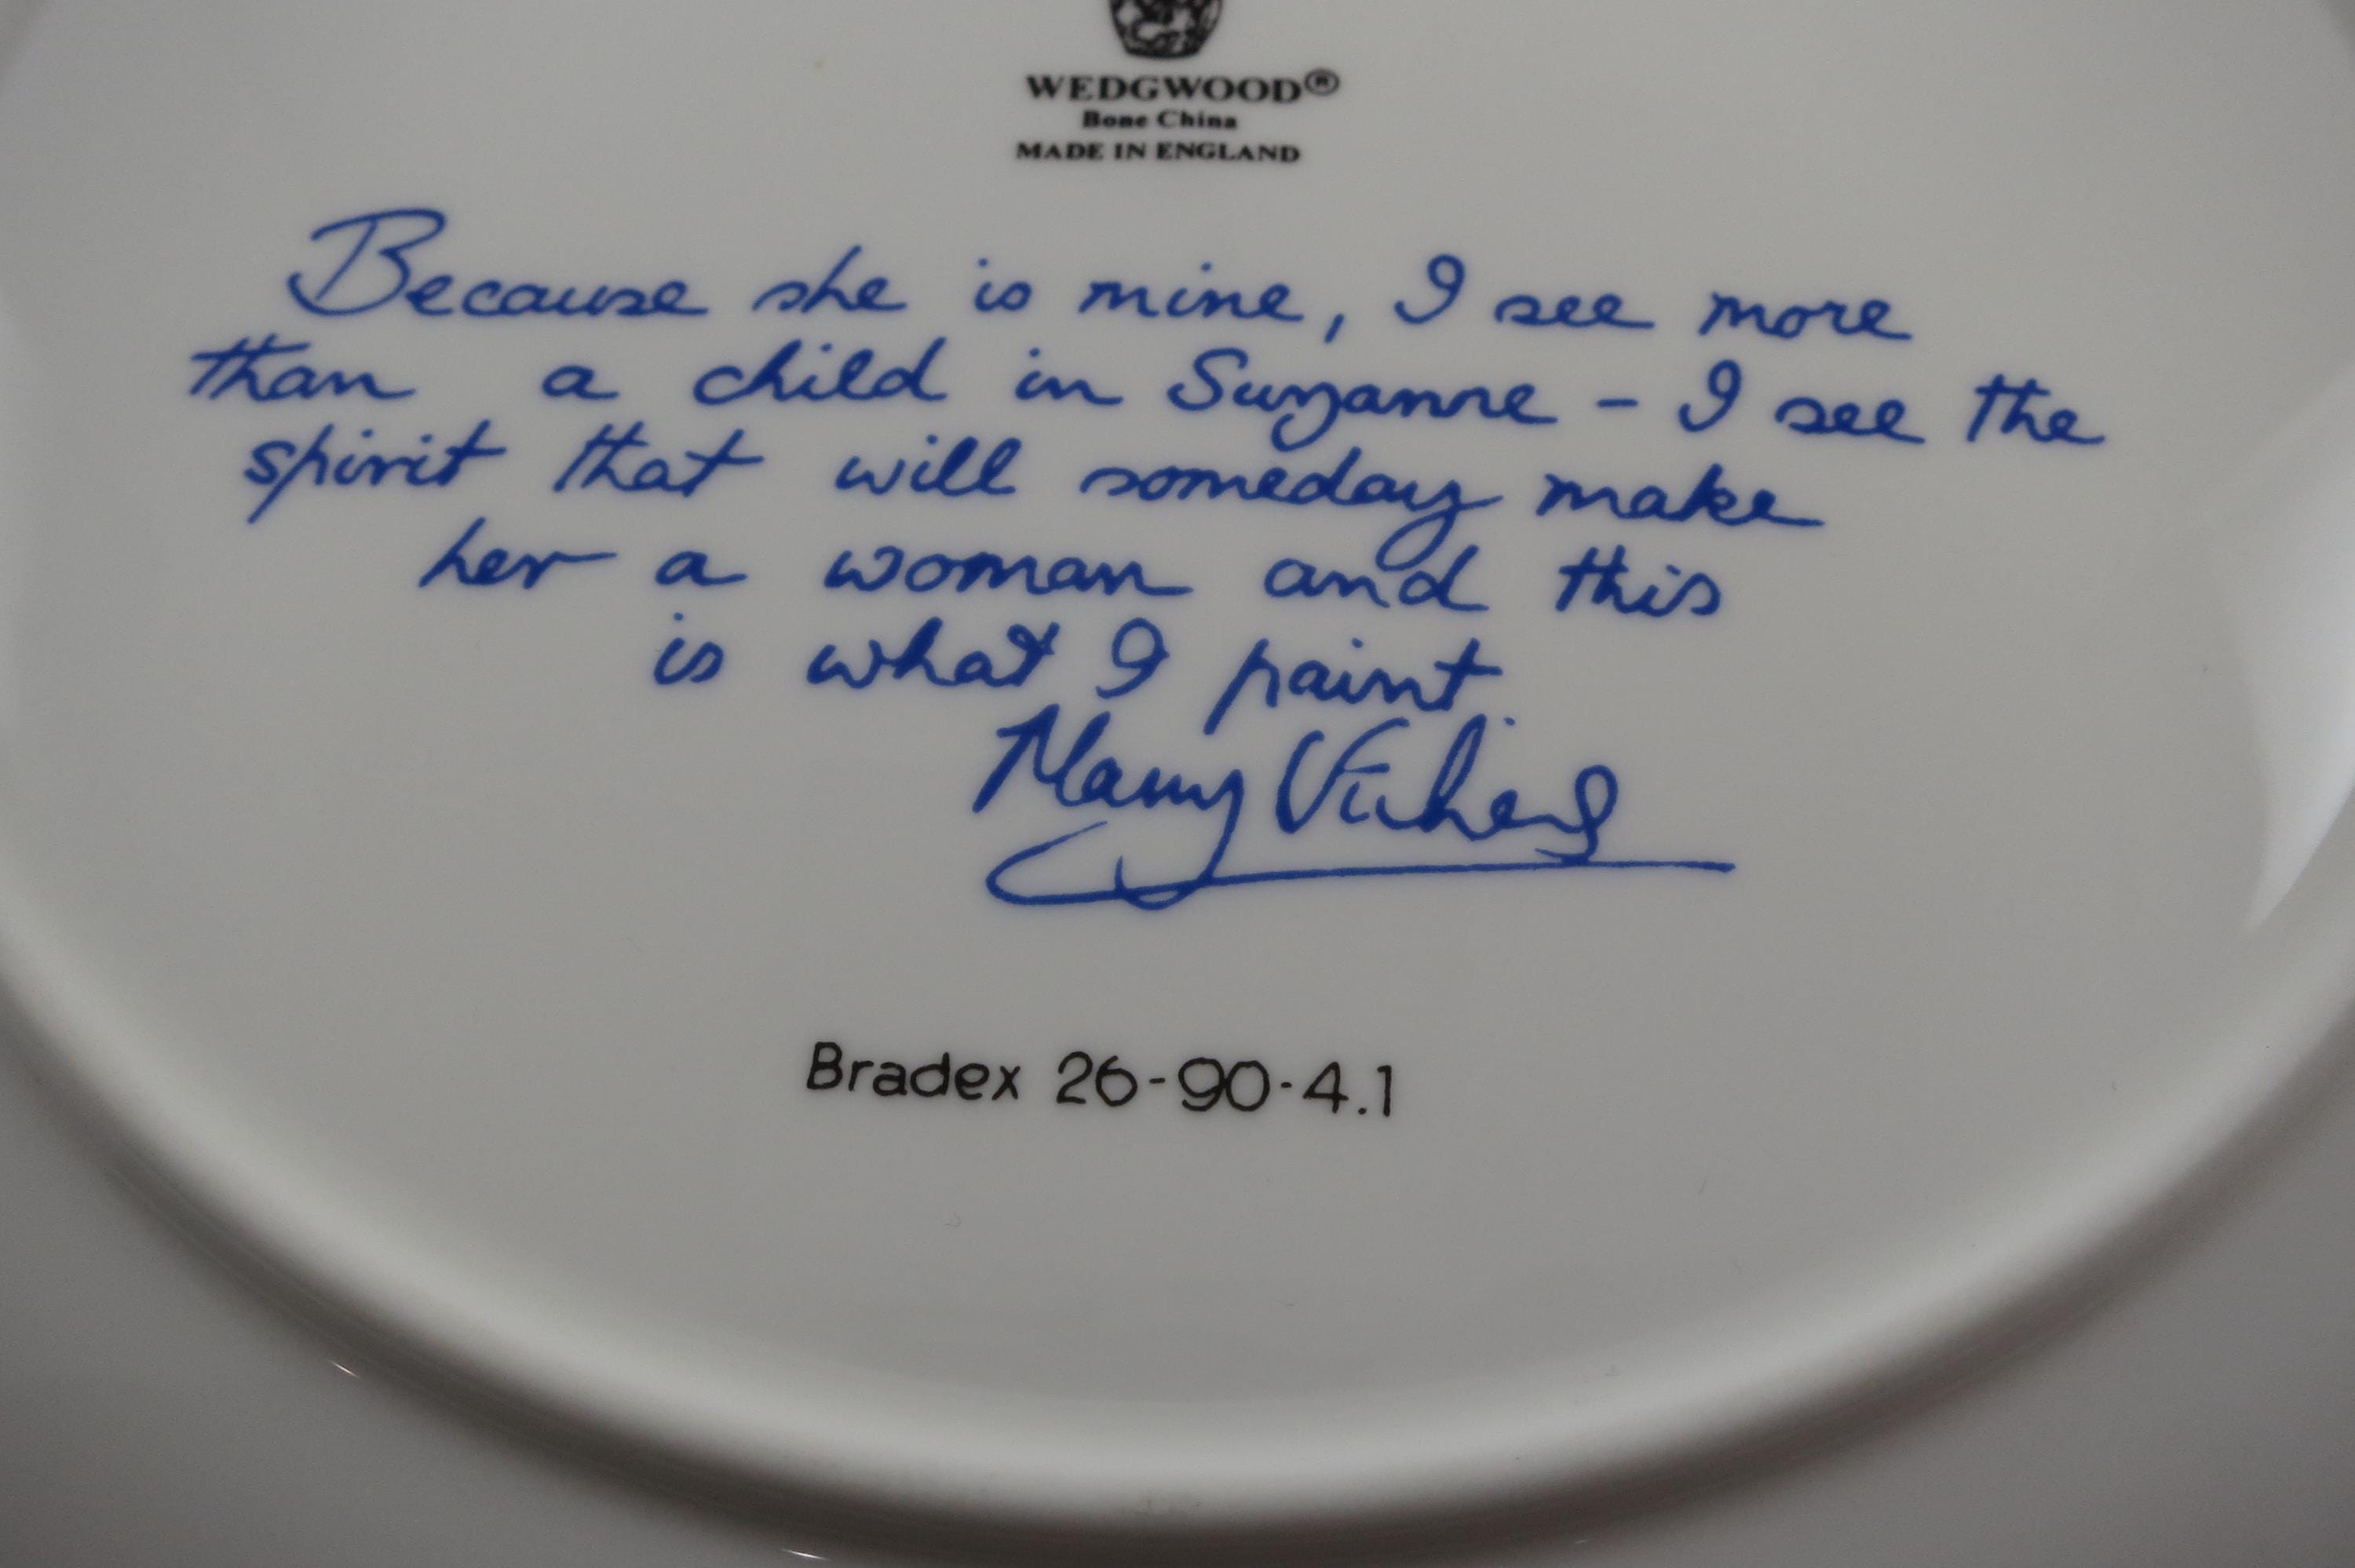 WEDGWOOD®
Bone China
MADE IN ENGLAND
Because she is mine, I see more
than a child in Suzanne - I see the
spirit that will someday make
her a woman and this
is what I paint.
Mary Vickers
Bradex 26-90-4.1